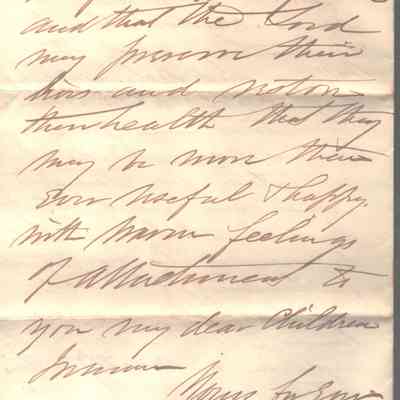 and that the Lord
may preserve their
lives and restore
their health that they
may be more than
Ever useful & happy.
with warm feelings
of attachment to
you my dear Children
I remain
Yours for Ever